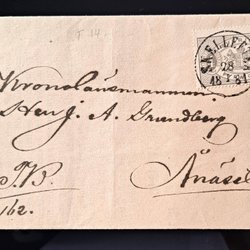 F 14.
SKELLEFTEÅ
28
18 84
Kronolänsmannen
Herr J. A. Grundberg
T.B.
Ånäset
162.